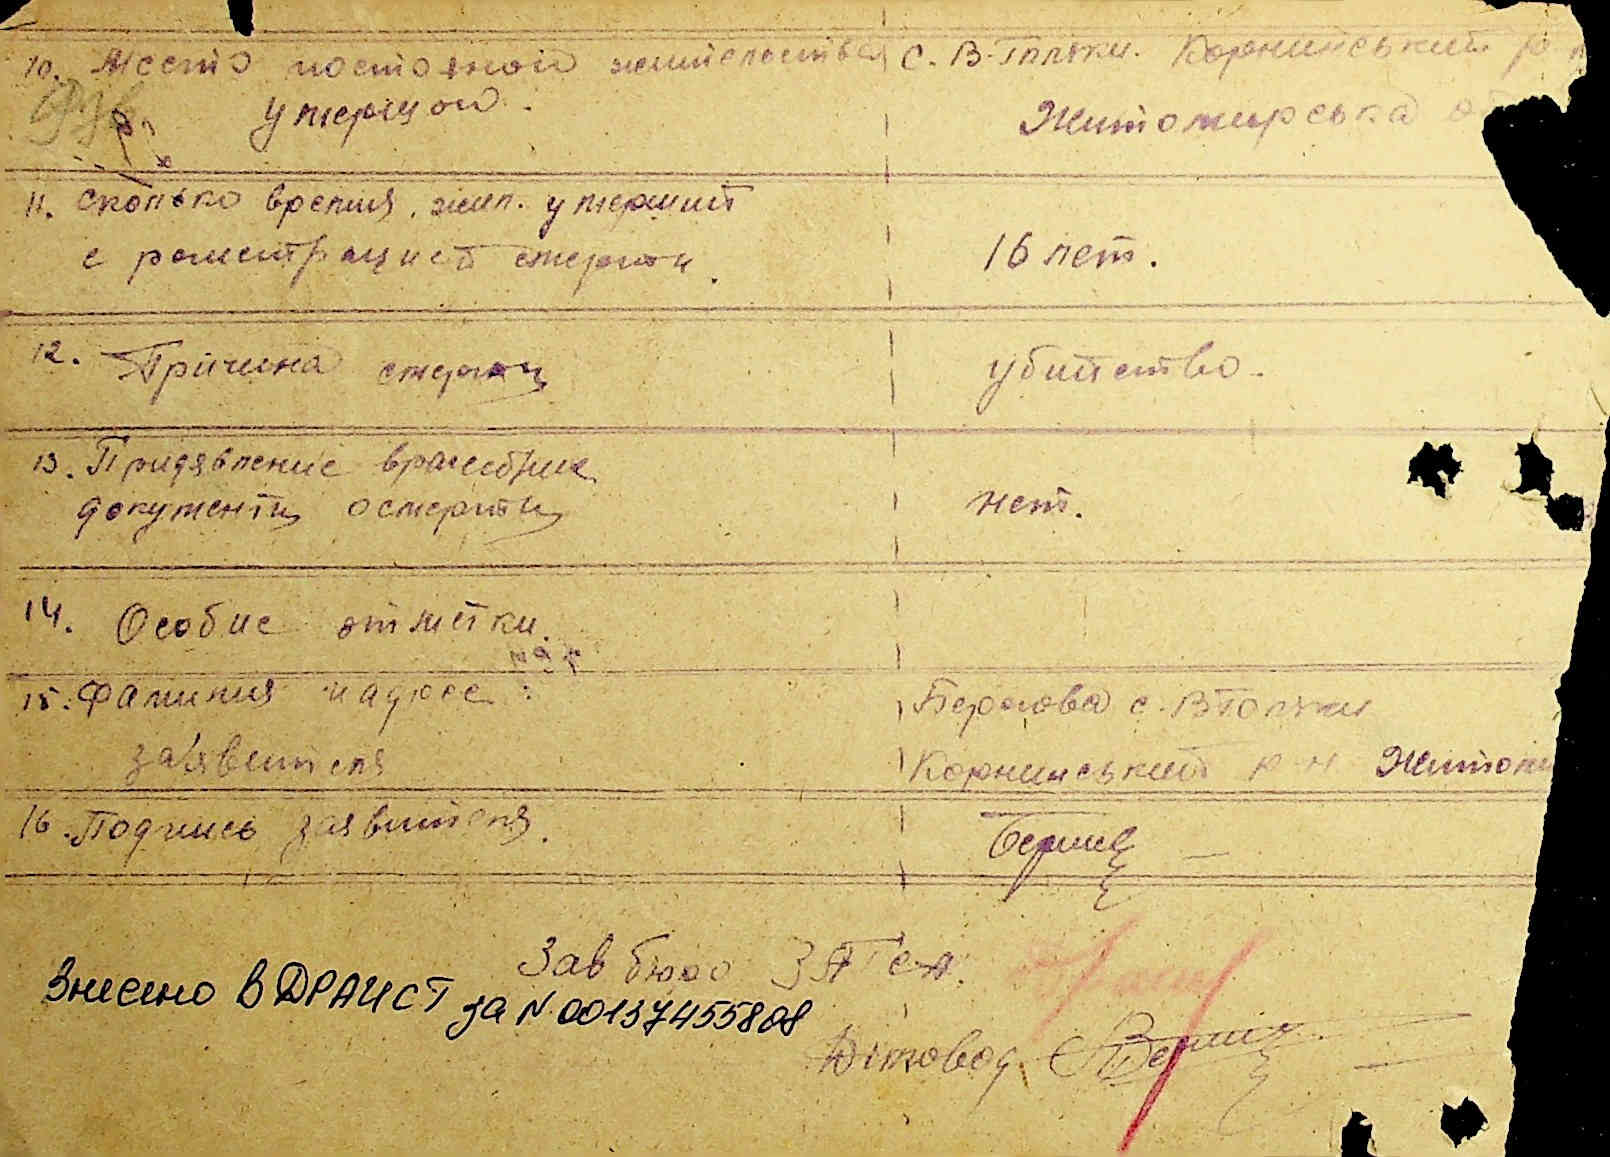 10. Место постояной жительства с. В-Гольки. Корнинський р
умерщой. Житомирська об
11. Сколько время, жил. умерший
с регистрацией смерти. 16 лет.
12. Причина смерти убийство.
13. Придявление врачебние
документи о смерти нет.
14. Особие отметки.
15. Фамилия и адрес:
заявителя Корнинський р-н Житоми
16. Подпись заявителя.
Зав бюро ЗАГСА.
Внесено в ДРАЦСГ за N 00137455808
Діловод